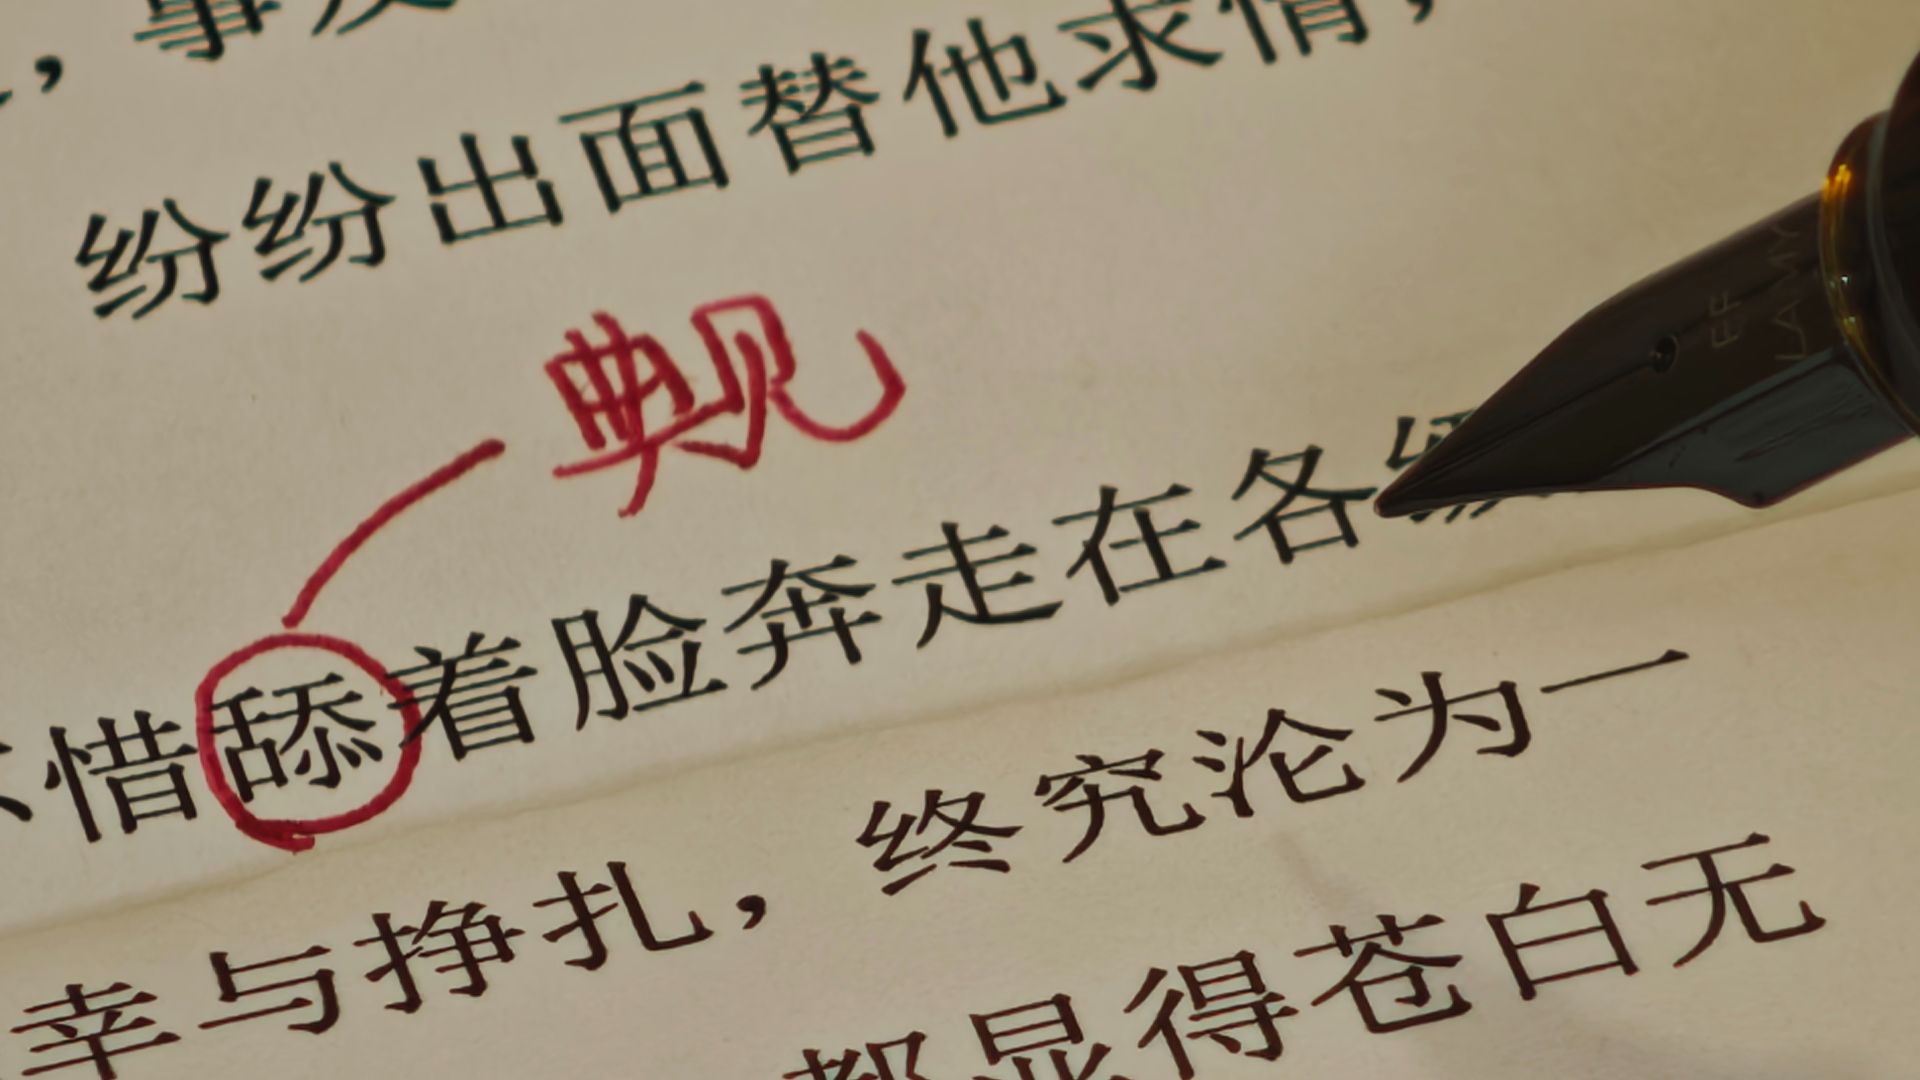 ，事
纷纷出面替他求情，
觍
惜舔着脸奔走在各
幸与挣扎，终究沦为一
都显得苍白无
EF
LAMY